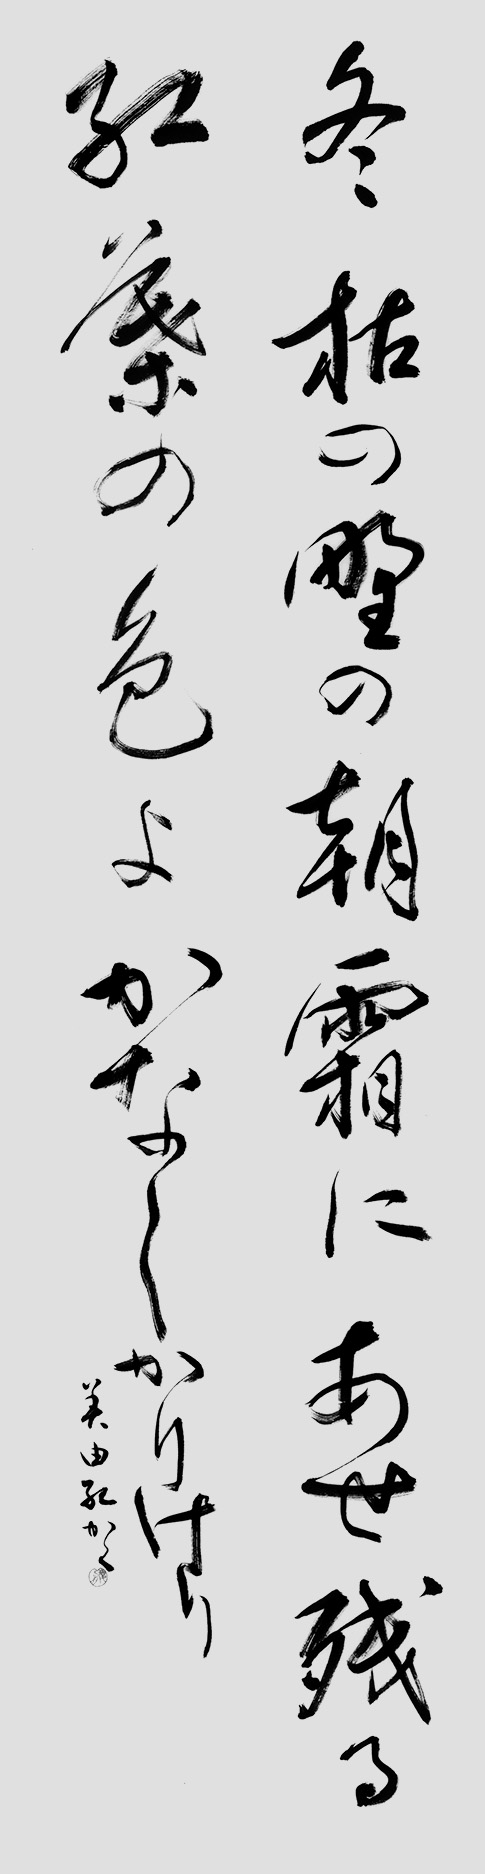 冬枯の野の朝霜にあせ残る
紅葉の色よかなしかりけり
美由紀かく